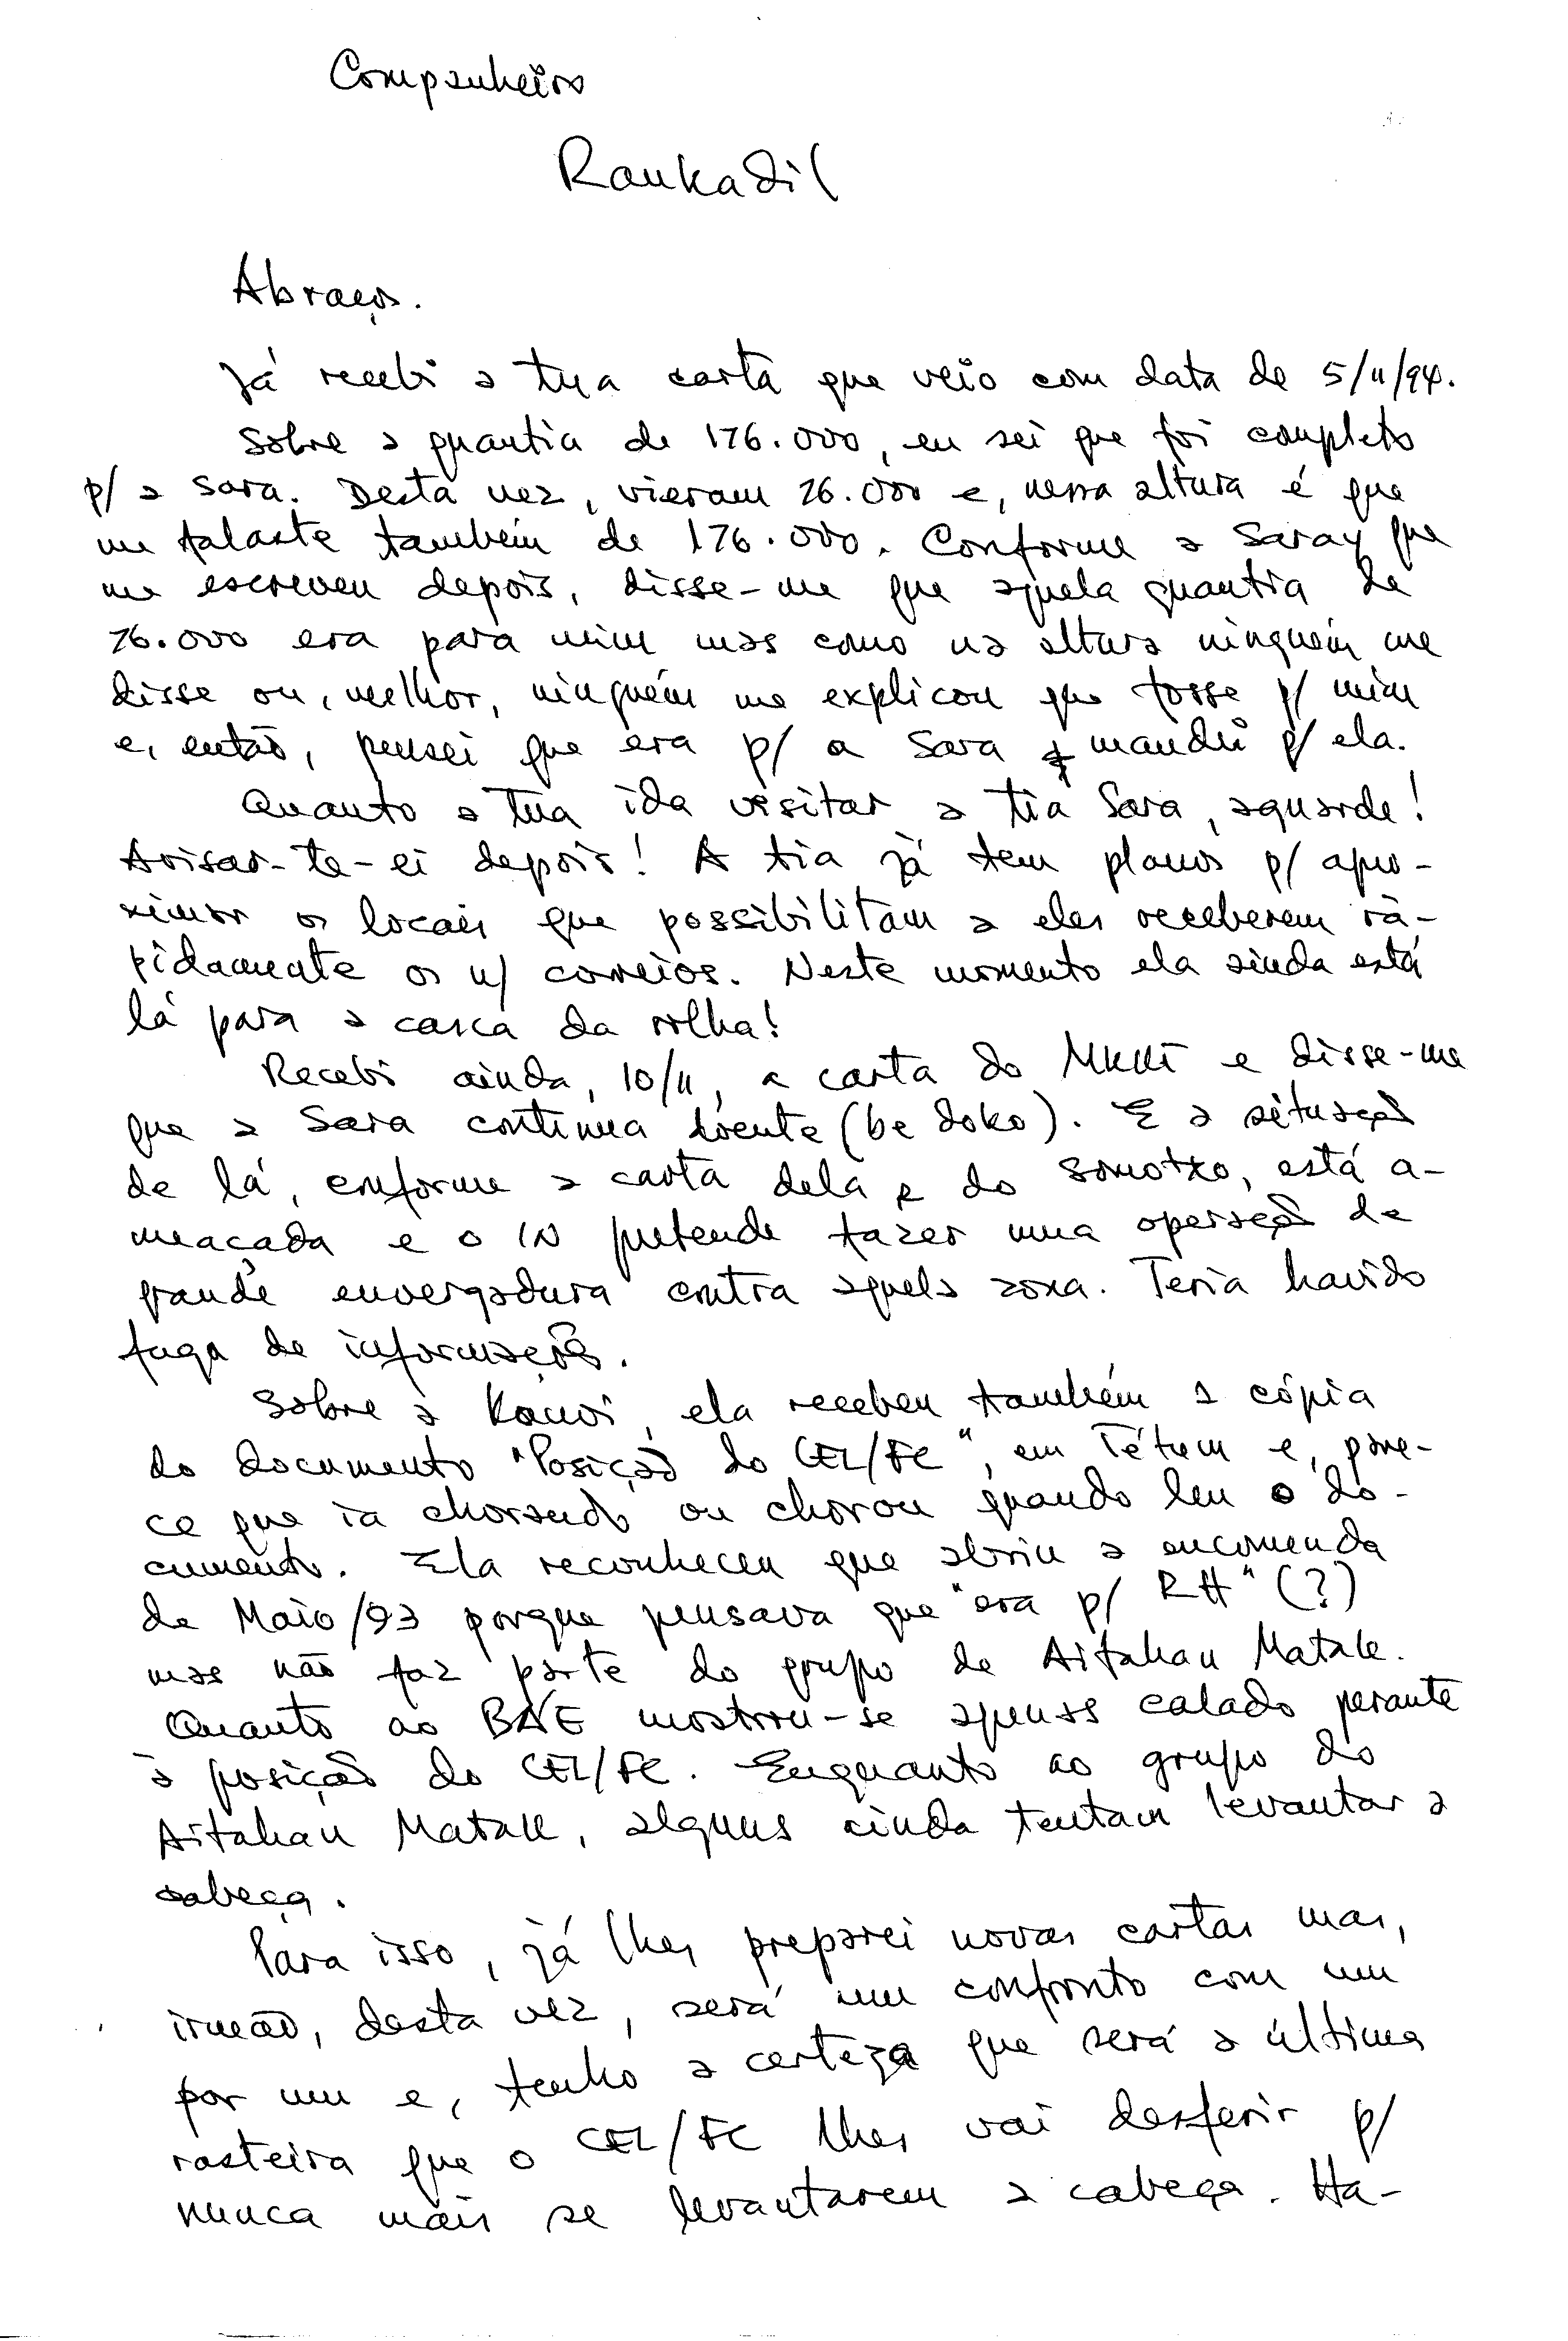 Companheiro
Rankadil
Abraços.
Já recebi a tua carta que veio com data de 5/11/94.
Sobre a quantia de 176.000, eu sei que foi completo
p/ a Sara. Desta vez, vieram 76.000 e, nessa altura é que
me falaste também de 176.000. Conforme a Saray que
me escreveu depois, disse-me que aquela quantia de
76.000 era para mim mas como na altura ninguém me
disse ou, melhor, ninguém me explicou que fosse p/ mim
e, então, pensei que era p/ a Sara e mandei p/ ela.
Quanto a tua ida visitar a tia Sara, aguarde!
Avisar-te-ei depois! A tia já tem planos p/ apro-
ximar os locais que possibilitam a eles receberem rà-
pidamente os n/ correios. Neste momento ela ainda está
lá para a casca da rolha!
Recebi ainda, 10/11, a carta do e disse-me
que a Sara continua doente (be doko). E a situação
de lá, conforme a carta dela e do Somotxo, está a-
meaçada e o IN pretende fazer uma operação de
grande envergadura contra aquela zona. Teria havido
fuga de informações.
Sobre a Konoi, ela recebeu também a cópia
do documento "Posição do CEL/FC", em Tétum e, pare-
ce que ia chorando ou chorou quando leu o do-
cumento. Ela reconheceu que abriu a encomenda
de Maio/93 porque pensava que "era p/ RH" (?)
mas não faz parte do grupo de Aitahan Matak.
Quanto ao mostrou-se apenas calado perante
à posição do CEL/FC. Enquanto ao grupo do
Aitahan Matak, alguns ainda tentam levantar a
cabeça.
Para isso, já lhes preparei novas cartas mas,
irmão, desta vez, será um confronto com um
por um e, tenho a certeza que será a última
rasteira que o CEL/FC lhes vai desferir p/
nunca mais se levantarem a cabeça. Ha-